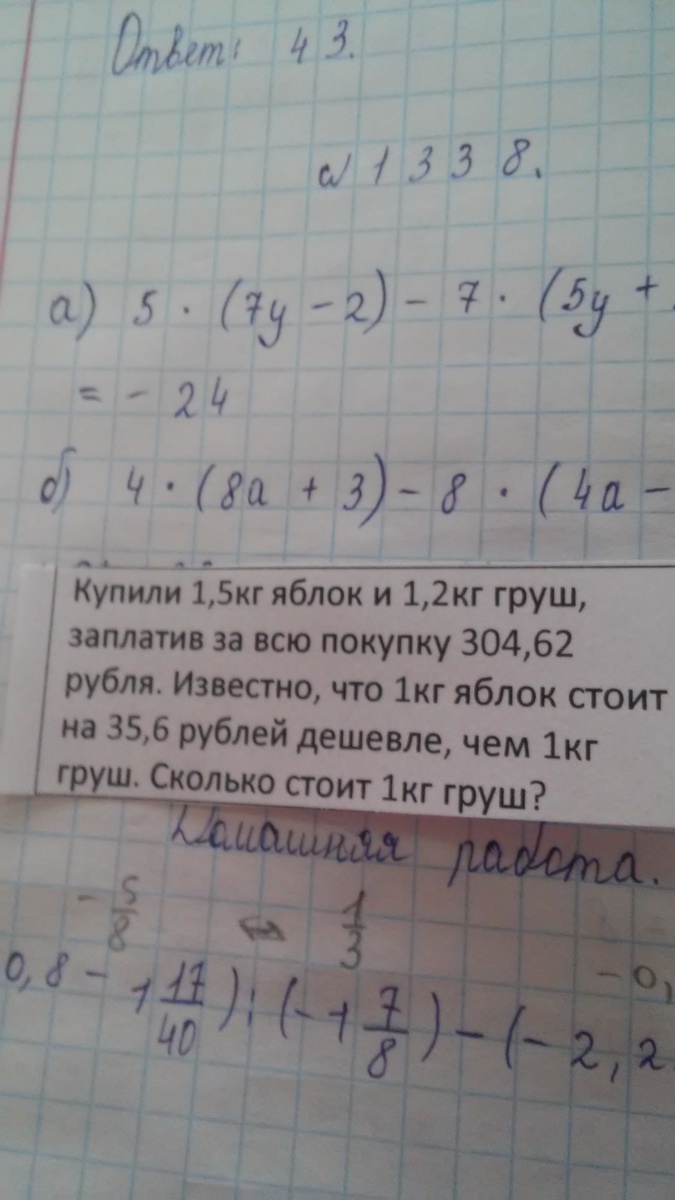 Ответ: 43.
№1338.
а) 5 · (7y - 2) - 7 · (5y +
= - 24
б) 4 · (8a + 3) - 8 · (4a -
Купили 1,5кг яблок и 1,2кг груш,
заплатив за всю покупку 304,62
рубля. Известно, что 1кг яблок стоит
на 35,6 рублей дешевле, чем 1кг
груш. Сколько стоит 1кг груш?
Домашняя работа.
- 5/8 ⇔ 1/3
- 0,
0,8 - 1 17/40) : (- 1 7/8) - (- 2,2